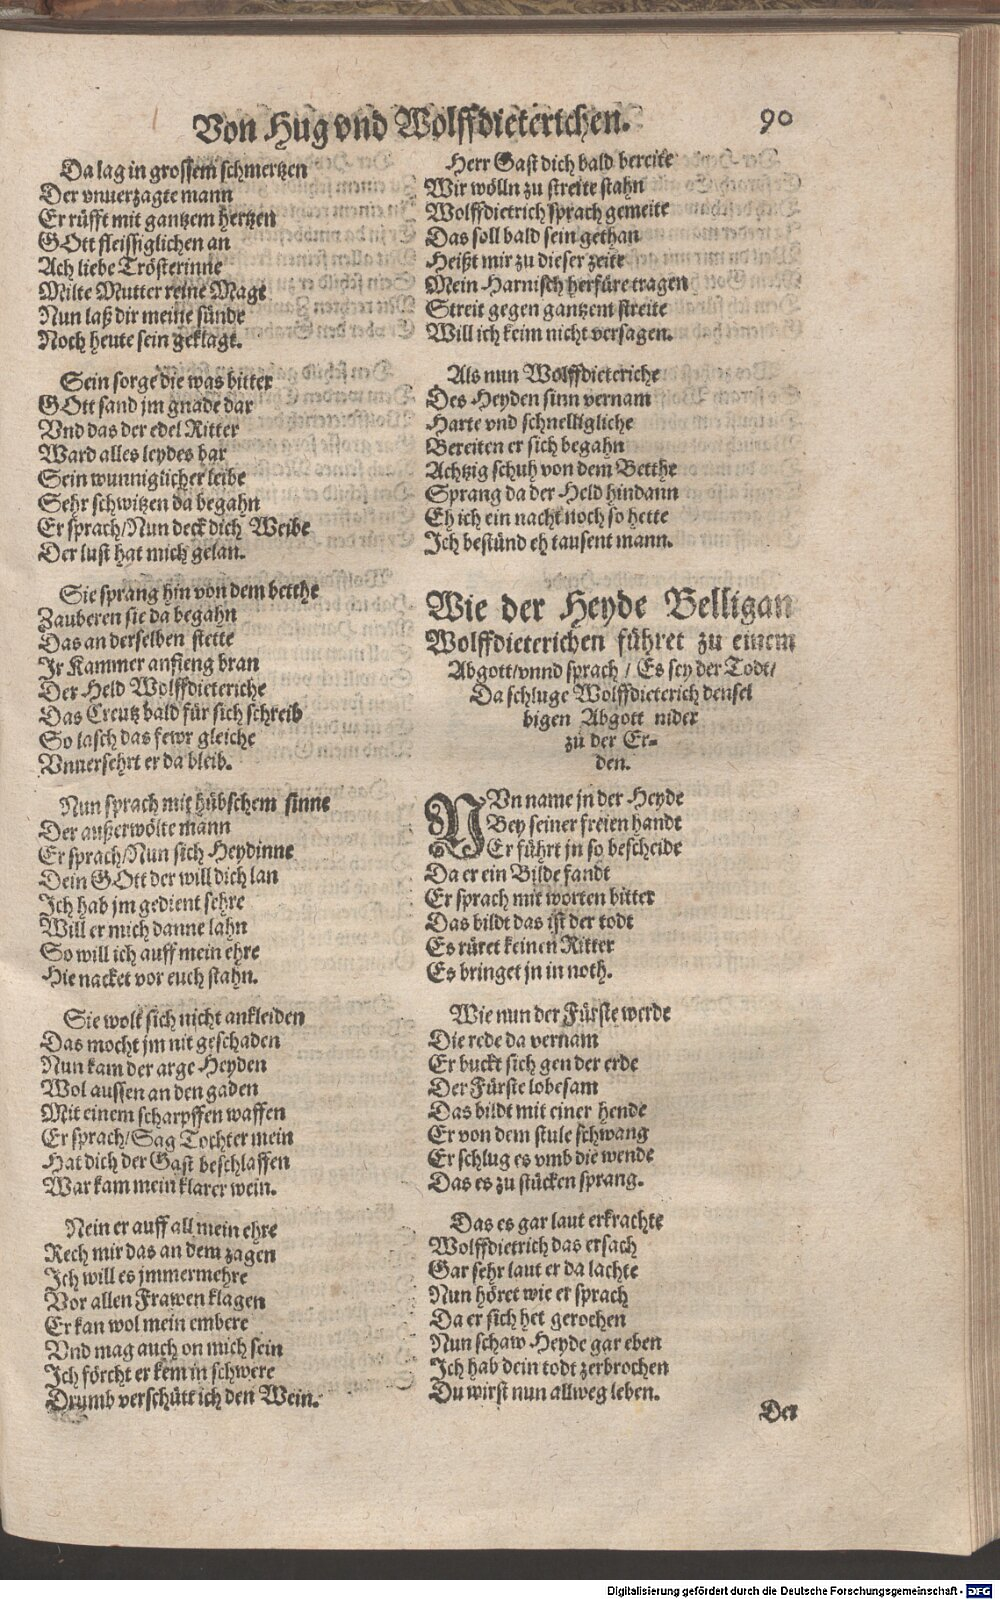 Von Hug vnd Wolffdieterichen. 90
Da lag in grossem schmertzen
Der vnuerzagte mann
Er rüfft mit gantzem hertzen
GOtt fleissiglichen an
Ach liebe Trösterinne
Milte Mutter reine Magt
Nun laß dir meine sünde
Noch heute sein geklagt.
Sein sorge die was bitter
GOtt sand jm gnade dar
Vnd das der edel Ritter
Ward alles leydes bar
Sein wunniglicher leibe
Sehr schwitzen da begahn
Er sprach/Nun deck dich Weibe
Der lust hat mich gelan.
Sie sprang hin von dem betthe
Zauberen sie da begahn
Das an derselben stette
Jr Kammer anfieng bran
Der Held Wolffdieteriche
Das Creutz bald für sich schreib
So lasch das fewr gleiche
Vnuersehrt er da bleib.
Nun sprach mit hübschem sinne
Der außerwölte mann
Er sprach/Nun sich Heydinne
Dein GOtt der will dich lan
Ich hab jm gedient sehre
Will er mich danne lahn
So will ich auff mein ehre
Hie nacket vor euch stahn.
Sie wolt sich nicht ankleiden
Das mocht jm nit geschaden
Nun kam der arge Heyden
Wol aussen an den gaden
Mit einem scharpffen waffen
Er sprach/Sag Tochter mein
Hat dich der Gast beschlaffen
War kam mein klarer wein.
Nein er auff all mein ehre
Rech mir das an dem zagen
Ich will es jmmermehre
Vor allen Frawen klagen
Er kan wol mein embere
Vnd mag auch on mich sein
Ich förcht er kem in schwere
Drumb verschütt ich den Wein.
Herr Gast dich bald bereite
Wir wölln zu streite stahn
Wolffdietrich sprach gemeite
Das soll bald sein gethan
Heißt mir zu dieser zeite
Mein Harnisch herfüre tragen
Streit gegen gantzem streite
Will ich keim nicht versagen.
Als nun Wolffdieteriche
Des Heyden sinn vernam
Harte vnd schnelligliche
Bereiten er sich begahn
Achtzig schuh von dem Betthe
Sprang da der Held hindann
Eh ich ein nacht noch so hette
Ich bestünd eh tausent mann.
Wie der Heyde Belligan
Wolffdieterichen führet zu einem
Abgott/vnnd sprach / Es sey der Todt/
Da schluge Wolffdieterich densel
bigen Abgott nider
zu der Er-
den.
NVn name jn der Heyde
Bey seiner freien handt
Er führt jn so bescheide
Da er ein Bilde fandt
Er sprach mit worten bitter
Das bildt das ist der todt
Es rüret keinen Ritter
Es bringet jn in noth.
Wie nun der Fürste werde
Die rede da vernam
Er buckt sich gen der erde
Der Fürste lobesam
Das bildt mit einer hende
Er von dem stule schwang
Er schlug es vmb die wende
Das es zu stücken sprang.
Das es gar laut erkrachte
Wolffdietrich das ersach
Gar sehr laut er da lachte
Nun höret wie er sprach
Da er sich het gerochen
Nun schaw Heyde gar eben
Ich hab dein todt zerbrochen
Du wirst nun allweg leben.
Der
Digitalisierung gefördert durch die Deutsche Forschungsgemeinschaft - DFG